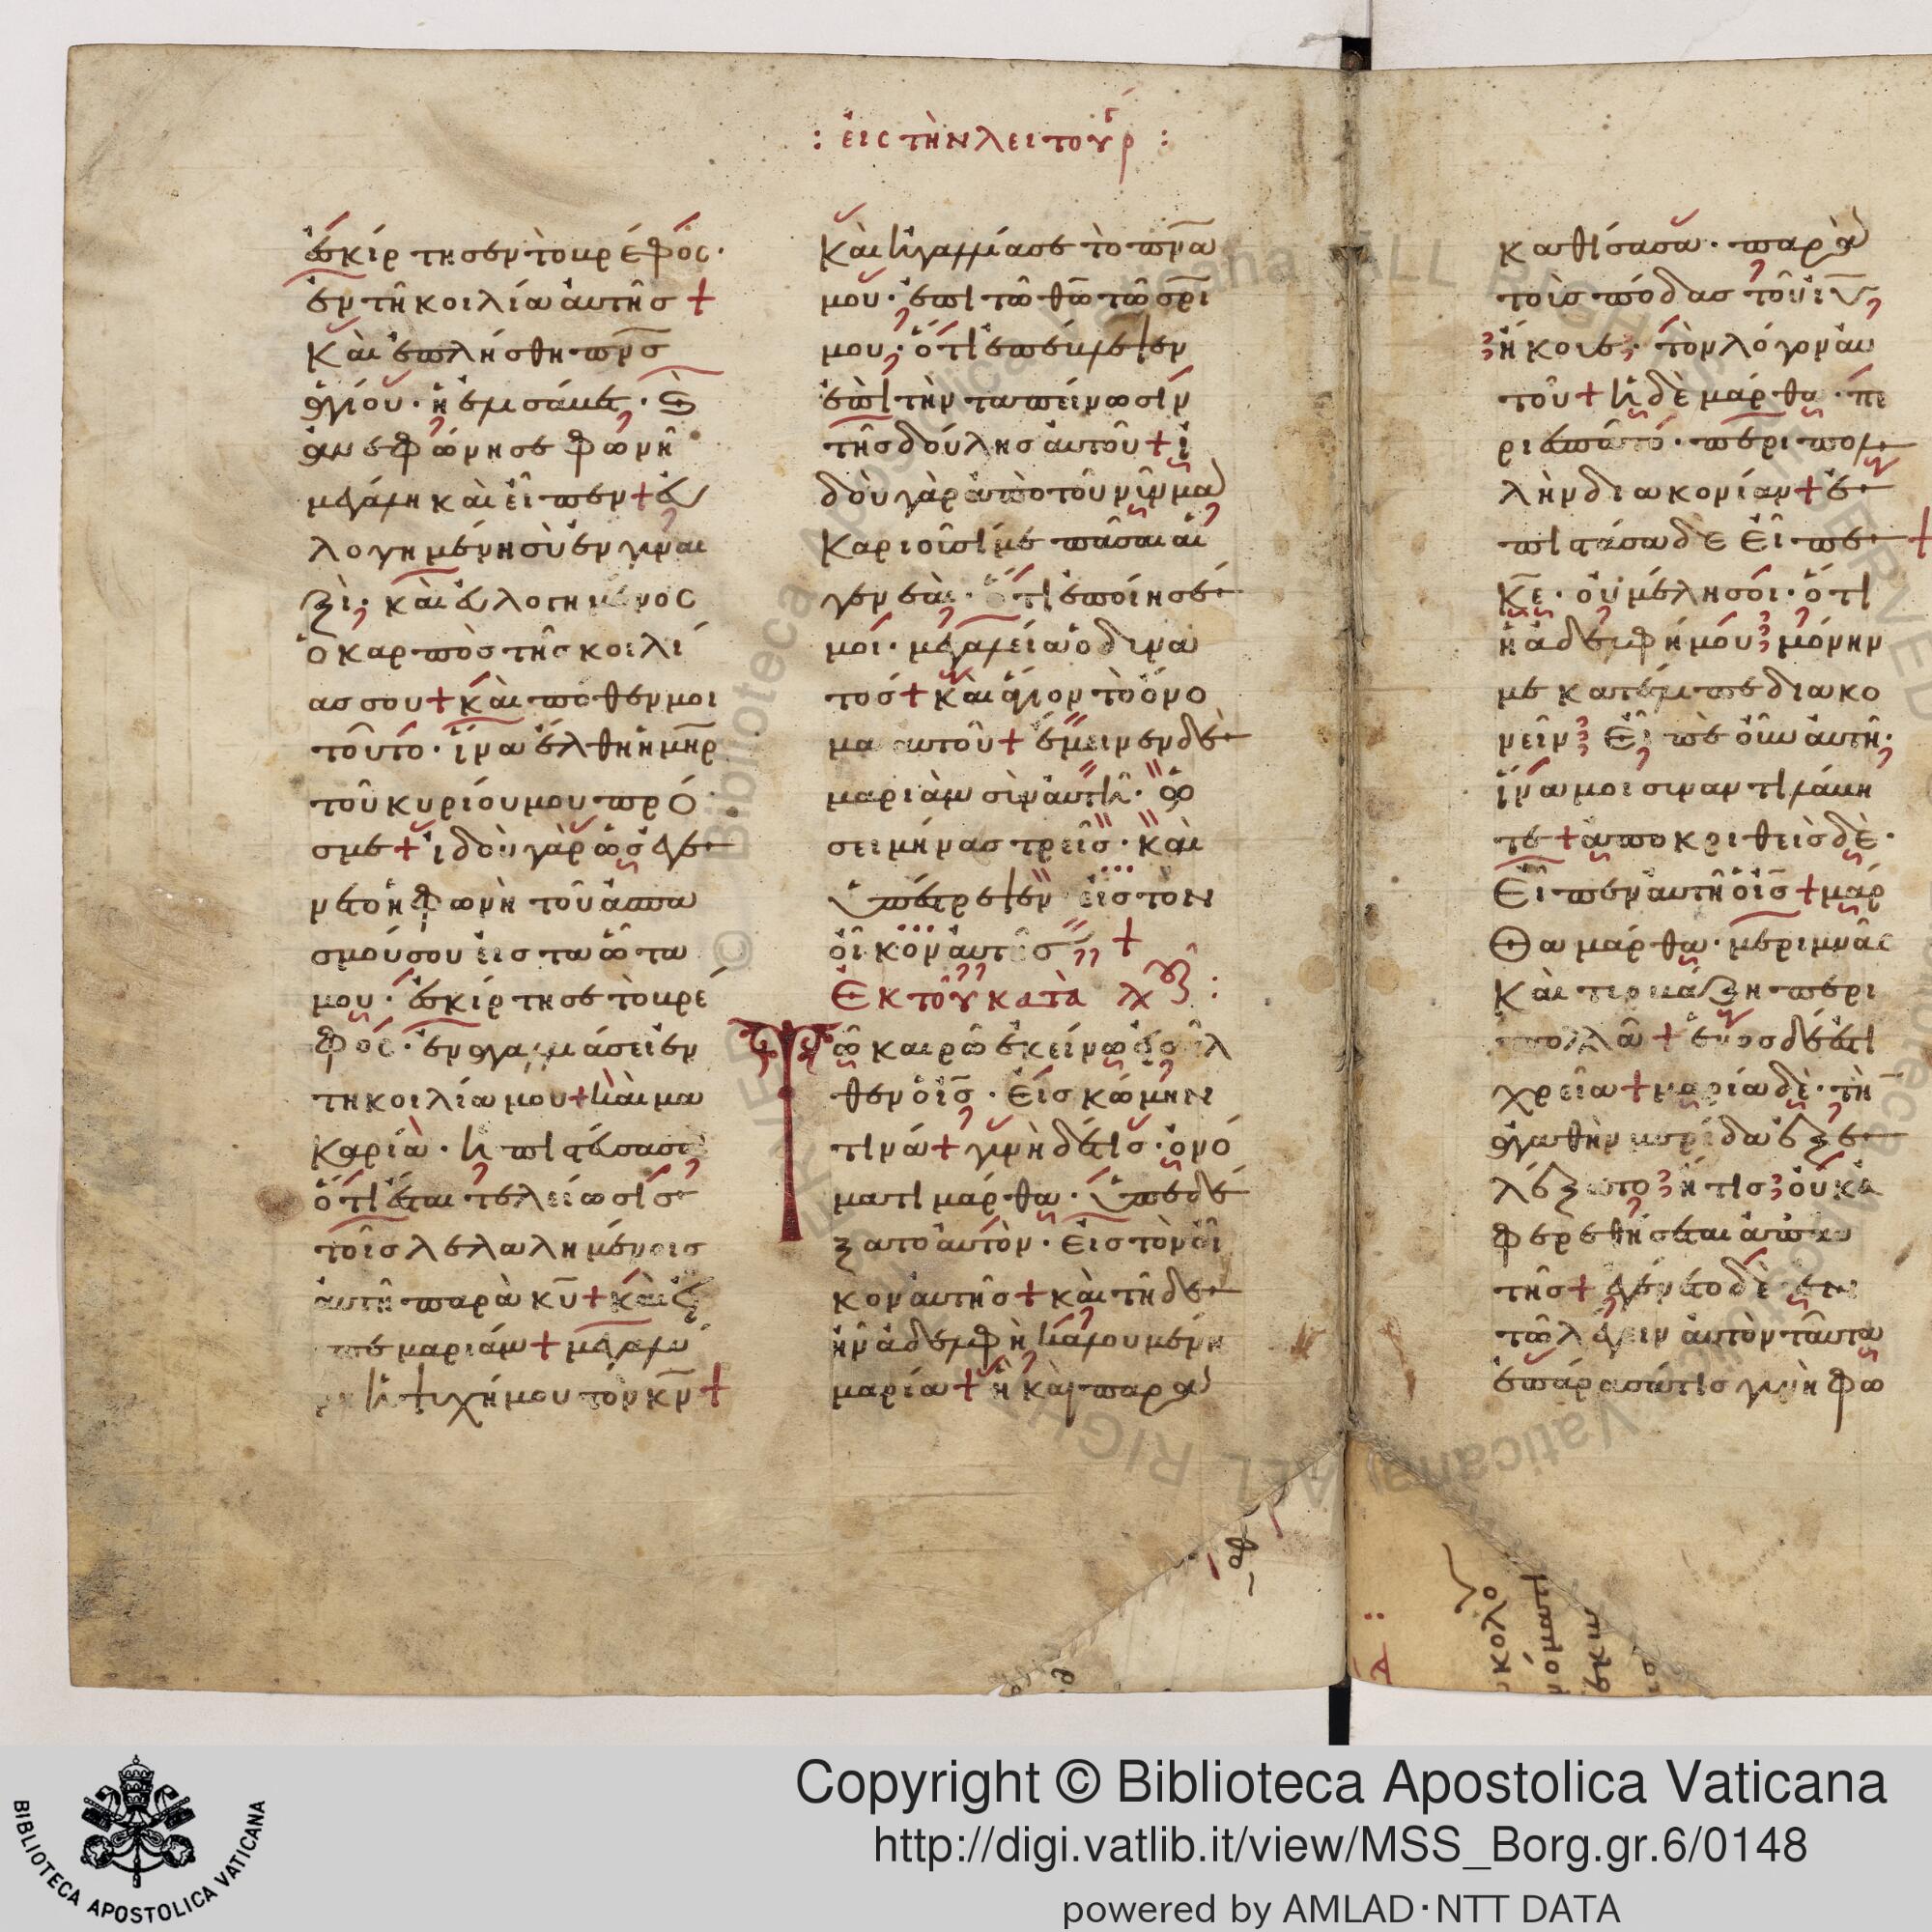 : εἰς τὴν λειτουρ :
ἐσκίρτησεν τὸ βρέφος·
ἐν τῆ κοιλία αὐτῆσ +
Καὶ ἐπλήσθη πνσ
ἁγίου· ἡ ἐλισάβετ· καὶ
ἀνεφώνησε φωνῆ
μεγάλη καὶ εἶπεν + εὐ
λογημένη σὺ ἐν γυναι
ξὶ· καὶ εὐλογημένος
ὁ καρπὸσ τῆσ κοιλί
ασ σου + καὶ πόθεν μοι
τοῦτο· ἵνα ἔλθη ἡ μηρ
τοῦ κυρίου μου πρό
σμε + ἰδοὺ γὰρ ὡσ ἐγέ
νετο ἡ φωνὴ τοῦ ἀσπα
σμοῦ σου εἰσ τα ὦτα
μου· ἐσκίρτησε τὸ βρέ
φος· ἐν ἀγαλλιάσει ἐν
τη κοιλία μου + καὶ μα
καρία· ἡ πιστεύσασα
ὅτι ἔσται τελείωσισ
τοῖσ λελαλημένοισ
αὐτῆ παρὰ κυ + καὶ εἶ
πε μαριάμ + μεγαλύ
νει ἡ ψυχή μου τὸν κν +
Καὶ ἠγαλλίασε τὸ πνα
μου· ἐπὶ τῶ θω τῶ σρι
μου· ὅτι ἐπέβλεψεν
ἐπὶ τὴν ταπείνωσιν
τῆσ δούλησ αὐτοῦ + ἰ
δοὺ γὰρ ἀπὸ τοῦ νῦν μα
καριοῦσί με πᾶσαι αἱ
γενεαὶ· ὅτι ἐποίησέ
μοι· μεγαλεία ὁ δυνα
τοσ + καὶ ἅγιον τὸ ὄνο
μα αὐτοῦ + ἔμεινεν δὲ
μαριὰμ σὺν αὐτῆ· ὡ
σει μήνασ τρεῖσ· καὶ
ὑπέστρεψεν εἰσ τὸν
οἶκον αὐτῆσ +
Ἐκ τοῦ κατὰ λουκ :
Τῶ καιρῶ ἐκείνω εἰσῆλ
θεν ὁ ισ· εἰσ κώμην
τινά + γυνὴ δέ τισ· ὀνό
ματι μάρθα· ὑπεδέ
ξατο αὐτὸν· εἰσ τὸν οἶ
κον αὐτῆσ + καὶ τῆδε
ἦν ἀδελφὴ καλουμένη
μαρία + ἣ καὶ παρα
καθίσασα· παρὰ
τοὺσ πόδασ τοῦ ιυ,
ἤκουε· τὸν λόγον αὐ
τοῦ + ἡ δὲ μάρθα· πε
ριεσπᾶτο· περὶ πολ
λὴν διακονίαν + ἐ
πιστᾶσα δὲ εἶπε +
Κε· οὐ μέλη σοι· ὅτι
ἡ ἀδελφή μου μόνην
με κατέλιπε διακο
νεῖν εἰπὲ οὖν αὐτῆ·
ἵνα μοι συναντιλάβη
τε + ἀποκριθεὶσ δὲ·
Εἶπεν αὐτῆ ὁ ισ + μάρ
θα μάρθα· μεριμνᾶς
Καὶ τυρβάζη περὶ
πολλὰ + ἑνοσ δέ ἐστι
χρεία + μαρία δὲ· τὴν
ἀγαθὴν μερίδα ἐξε
λέξατο ἥτισ οὐκ ἀ
φερεθήσεται ἀπ᾽ αυ
τῆσ + ἐγένετο δὲ ἐν
τῶ λέγειν αὐτὸν ταῦτα
ἐπάρασά τισ γυνὴ φω
κολο
όματι
Copyright © Biblioteca Apostolica Vaticana
http://digi.vatlib.it/view/MSS_Borg.gr.6/0148
powered by AMLAD·NTT DATA
BIBLIOTECA APOSTOLICA VATICANA